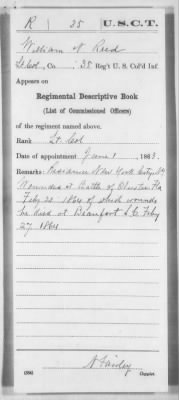 R | 35 | U.S.C.T.
William N Reed
Lt Col, Co. , 35 Reg't U. S. Col'd Inf.
Appears on
Regimental Descriptive Book
(List of Commissioned Officers)
of the regiment named above.
Rank Lt. Col
Date of appointment June 1 , 1863.
Remarks: Residence New York City NY
Wounded at Battle of Olustee Fla
Feby 20 1864 of which wounds
he died at Beaufort S.C. Feby
27 1864
Copyist.